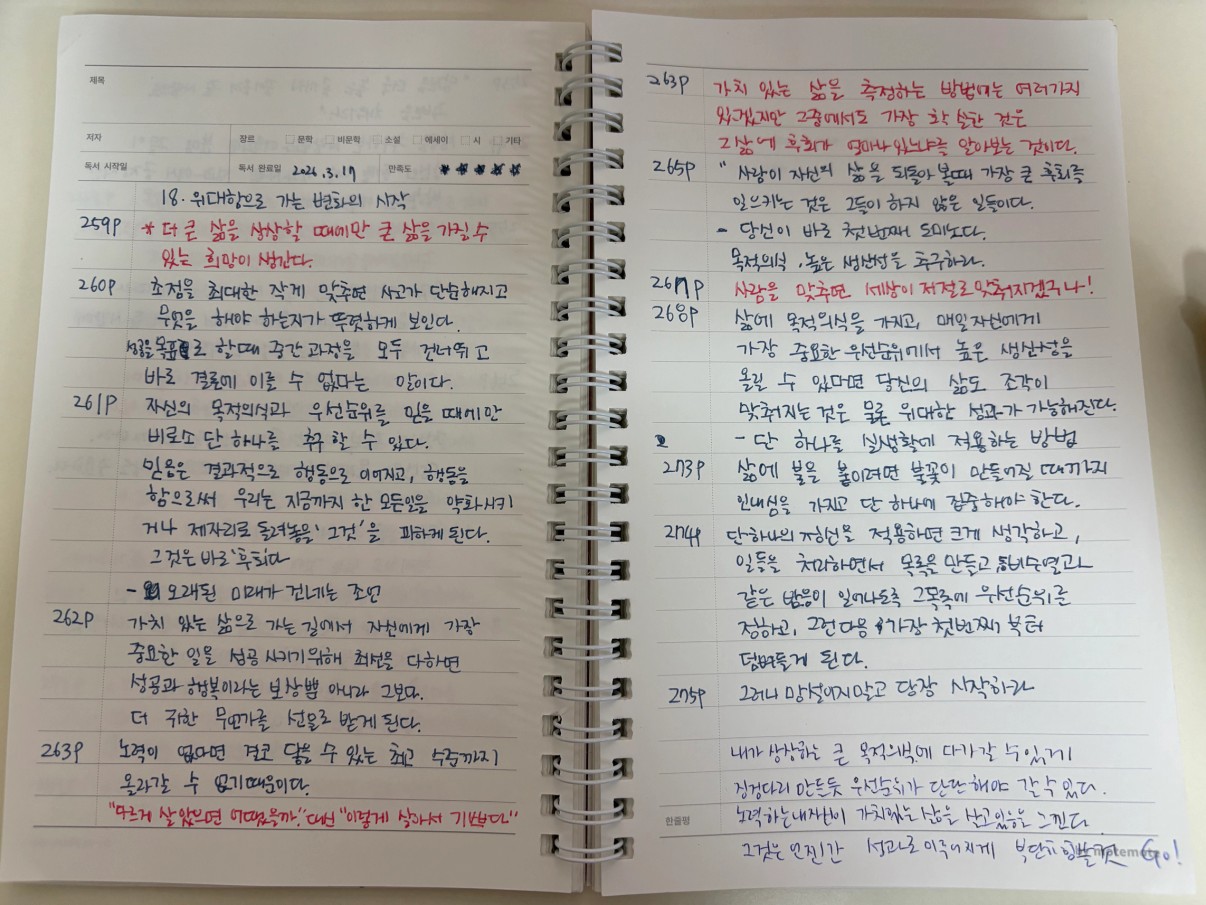 제목
저자
장르 □ 문학 □ 비문학 □ 소설 □ 에세이 □ 시 □ 기타
독서 시작일 독서 완료일 2026.3.17 만족도 ★★★★★
18. 위대함으로 가는 변화의 시작
259p * 더 큰 삶을 상상할 때에만 큰 삶을 가질 수
있는 희망이 생긴다.
260p 초점을 최대한 작게 맞추면 사고가 단순해지고
무엇을 해야 하는지가 뚜렷하게 보인다.
성공을 목표로 할때 중간 과정을 모두 건너뛰고
바로 결론에 이를 수 없다는 말이다.
261p 자신의 목적의식과 우선순위를 믿을 때에만
비로소 단 하나를 추구 할 수 있다.
믿음은 결과적으로 행동으로 이어지고, 행동을
함으로써 우리는 지금까지 한 모든일을 약화시키
거나 제자리로 돌려놓을 '그것'을 피하게 된다.
그것은 바로 '후회다
- 오래된 미래가 건네는 조언
262p 가치 있는 삶으로 가는 길에서 자신에게 가장
중요한 일을 성공 시키기위해 최선을 다하면
성공과 행복이라는 보상뿐 아니라 그보다.
더 귀한 무언가를 선물로 받게 된다.
263p 노력이 없다면 결코 닿을 수 있는 최고 수준까지
올라갈 수 없기때문이다.
"다르게 살았으면 어땠을까." 대신 "이렇게 살아서 기쁘다"
263p 가치 있는 삶을 측정하는 방법에는 여러가지
있겠지만 그중에서도 가장 확실한 것은
그삶에 후회가 얼마나 있느냐를 알아보는 것이다.
265p " 사람이 자신의 삶을 되돌아 볼때 가장 큰 후회를
일으키는 것은 그들이 하지 않은 일들이다.
- 당신이 바로 첫번째 도미노다.
목적의식, 높은 생산성을 추구하라.
267p 사람을 맞추면 세상이 저절로 맞춰지겠구나!
268p 삶에 목적의식을 가지고, 매일 자신에게
가장 중요한 우선순위에서 높은 생산성을
올릴 수 있다면 당신의 삶도 조각이
맞춰지는 것은 물론 위대한 성과가 가능해진다.
- 단 하나를 실생활에 적용하는 방법
273p 삶에 불을 붙이려면 불꽃이 만들어질 때까지
인내심을 가지고 단 하나에 집중해야 한다.
274p 단 하나의 적용하면 크게 생각하고,
일들을 처리하면서 목록을 만들고, 등비수열과
같은 반응이 일어나도록 그목록에 우선순위를
정하고, 그런 다음 가장 첫번째 부터
덤벼들게 된다.
275p 그러나 망설이지말고 당장 시작하라
내가 상상하는 큰 목적의식에 다가갈 수 있게
징검다리 만든듯 우선순위가 단단해야 갈 수 있다.
한줄평 노력하는 내자신이 가치있는 삶을 살고있음을 느낀다
그것은 언젠간 성과로 이루어지게 Go!
motemote